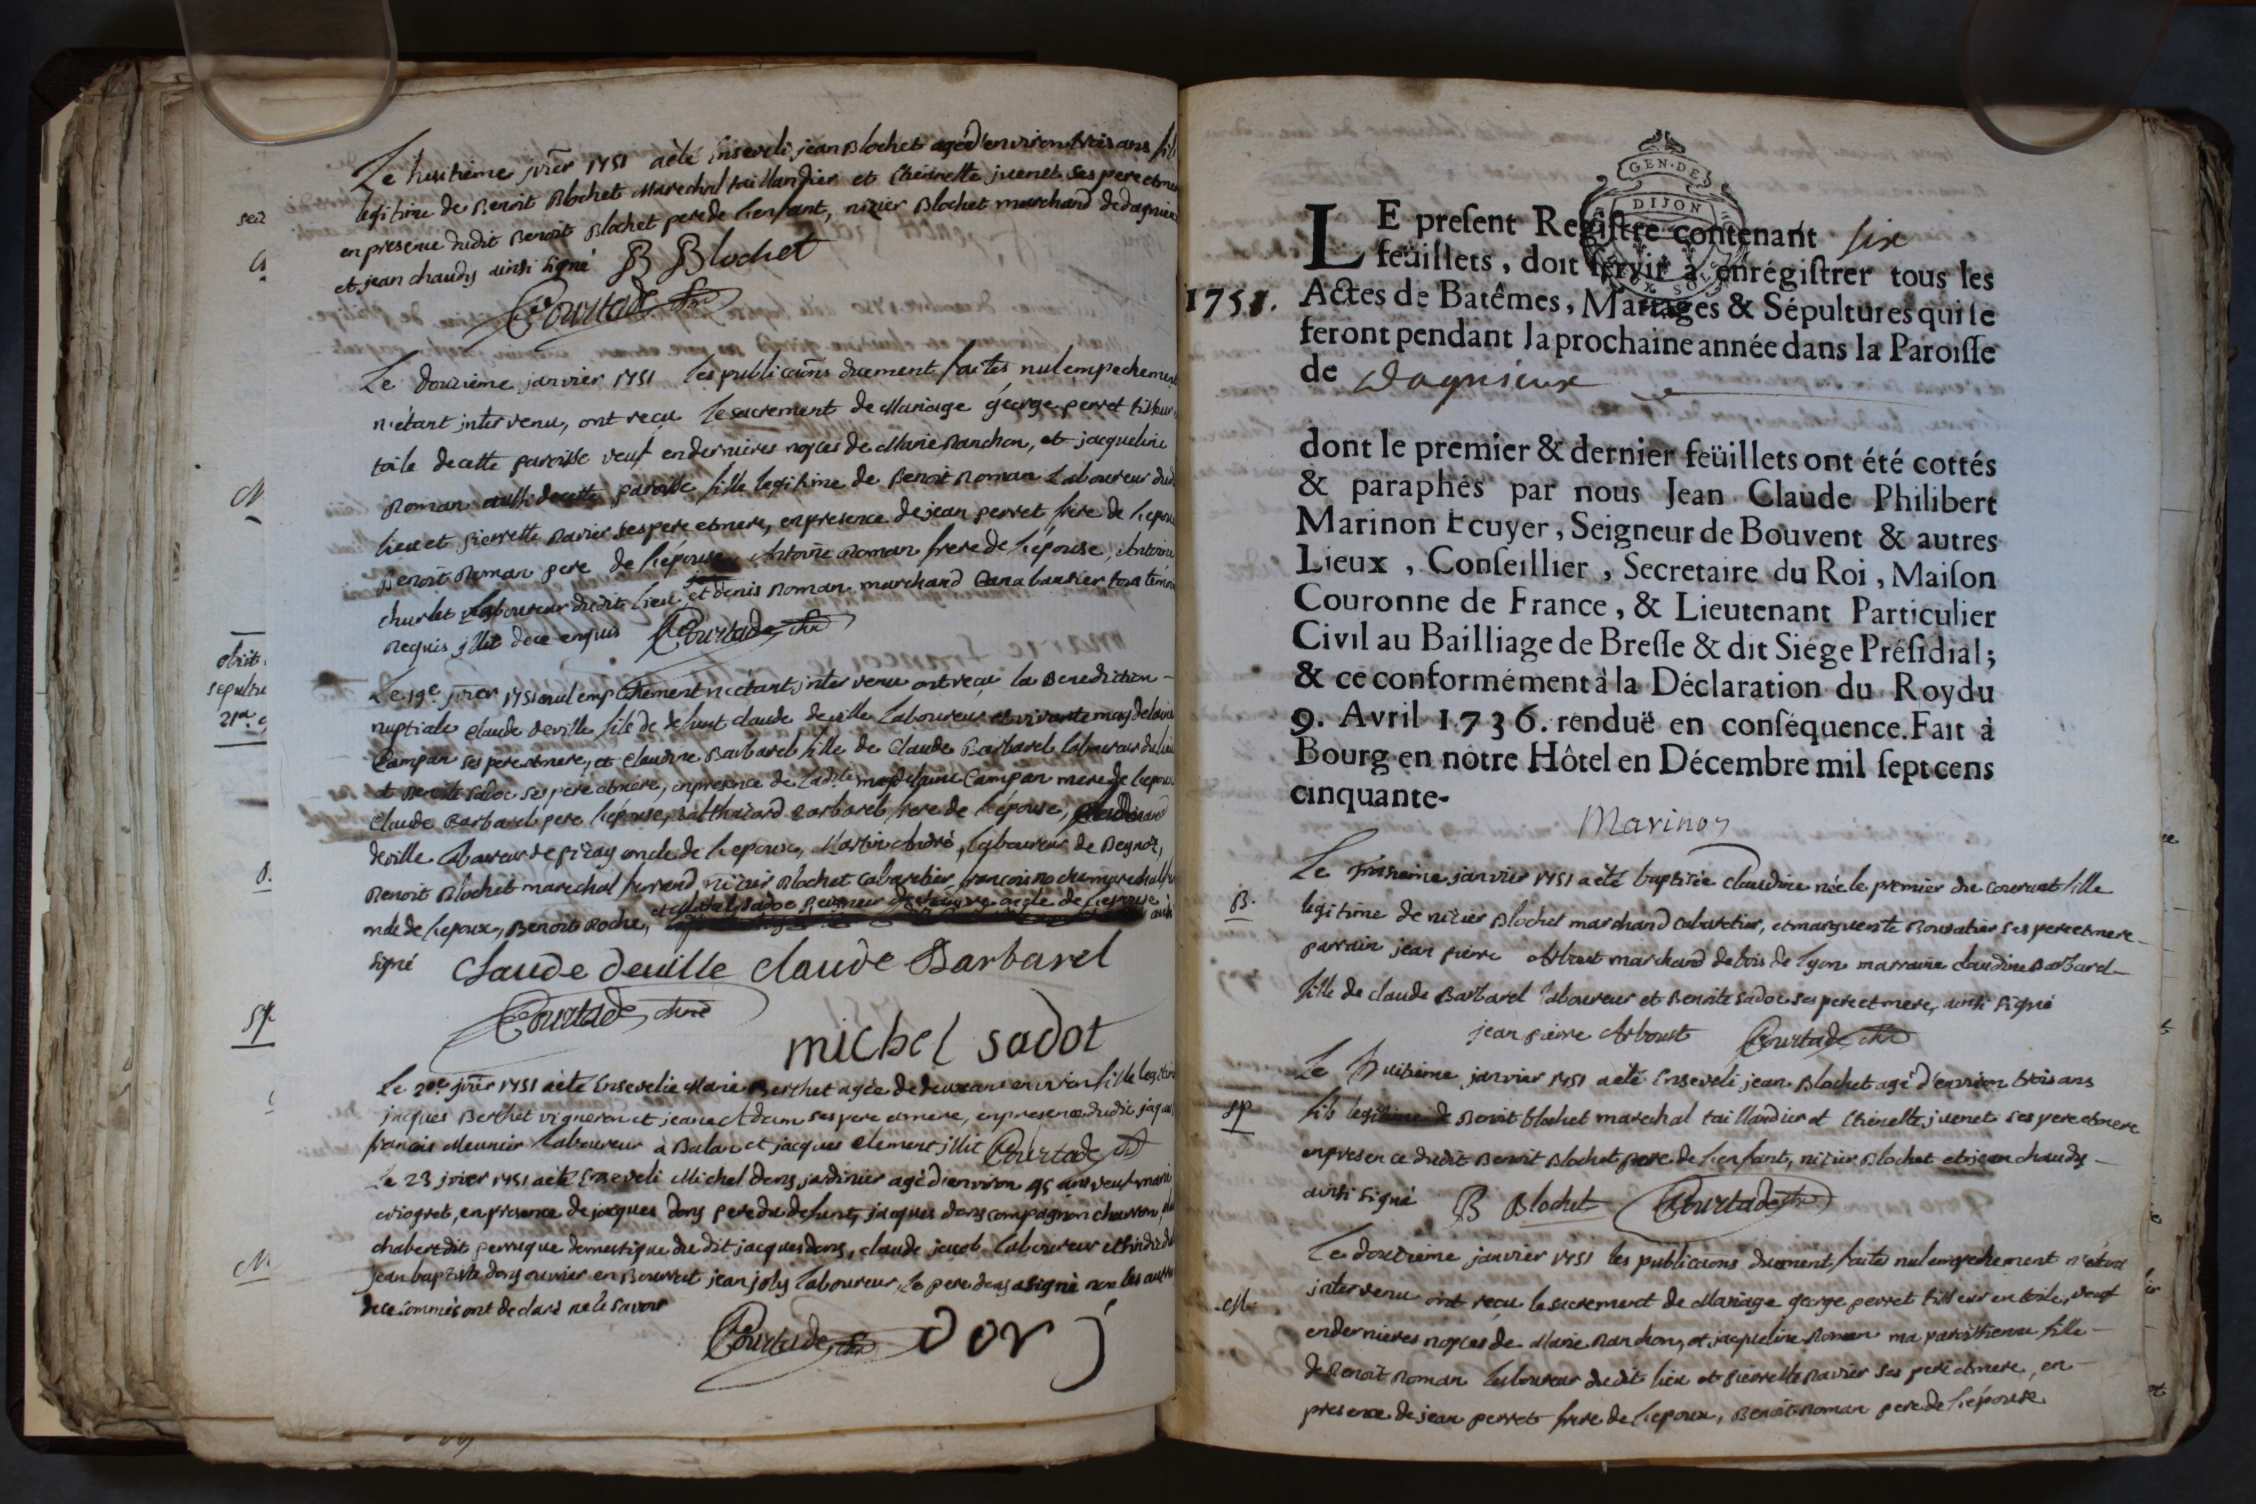 Le huitième jñer 1751 a été Enseveli jean Blochet agé d'environ trois ans fils
legitime de Benoit Blochet Marechal taillandier et Etiennette juenet ses pere et mere
en presence dudit Benoit Blochet pere de l'enfant, nizier Blochet marchand de dagnieux
et jean chaudy ainsi signé B Blochet
Courtade
Le douzième janvier 1751 les publicaõns duement faites nul empechement
n'étant intervenu, ont reçu le sacrement de Mariage george perret tisseur
toile de cette paroisse veuf en dernieres noçes de Marie Ranchon, et jacqueline
Roman aussi de cette paroisse fille legitime de Benoit Roman Laboureur dud
lieu et pierrette Ravier ses pere et mere, en presence de jean perret frere de l'epoux
Benoit Roman pere de l'épouse Antoine Roman frere de l'épouse, Antoine
churlet Laboureur dudit lieu et denis Roman marchand Canabassier tous témoins
Requis illit de ce enquis Courtade
Le 19e jñer 1751 nul empechement n'etant intervenu ont reçu la Benediction
nuptiale Claude deville fils de defunt claude deville Laboureur et vivante magdelaine
Campan ses pere et mere, et Claudine Barbarel fille de Claude Barbarel laboureur du lieu
et Benoite Sadoc ses pere et mere, en presence de Ladte magdelaine Campan mere de l'epoux
Claude Barbarel pere l'épouse, Balthazard Barbarel frere de l'épouse,
deville Laboureur de pizay oncle de l'epoux, Martin André, laboureur de Beynot,
Benoit Blochet marechal ferrand, nizier Blochet Cabaretier françois
de l'epoux, Benoit Roche, et Michel Sadoc oncle de l'epouse
signé Claude deuille claude Barbarel
Courtade
michel sadot
Le 20e jñer 1751 a été Ensevelie Marie Berthet agée de deux ans environ fille legitime
jacques Berthet vigneron et jeane Adam ses pere et mere, en presence dudit jaques
francois Meunier Laboureur à Balan et jacques Clement illit Courtade
Le 23 jvier 1751 a été Enseveli Michel dory jardinier agé d'environ 45 ans veuf marie
en presence de jacques dory pere du defunt, jacques dory compagnon charron,
chabert dit perruque domestique du dit jacques dory, claude jacob Laboureur
jean baptiste dory ouvrier en jean joly laboureur, Le pere dory a signé non les autres
de ce sommés ont declaré ne le savoir
Courtade dory
sez
obiit
sepultu
21a
M
Sp
M
GEN. DE
DIJON
DEUX SOLS
1751.
LE preſent Regiſtre contenant six
feüillets, doit ſervir à enrégiſtrer tous les
Actes de Batêmes, Mariages & Sépultures qui ſe
feront pendant la prochaine année dans la Paroiſſe
de Dagnieux
dont le premier & dernier feüillets ont été cottés
& paraphés par nous Jean Claude Philibert
Marinon Ecuyer, Seigneur de Bouvent & autres
Lieux, Conſeillier, Secretaire du Roi, Maiſon
Couronne de France, & Lieutenant Particulier
Civil au Bailliage de Breſſe & dit Siége Préſidial;
& ce conformément à la Déclaration du Roy du
9. Avril 1736. renduë en conſéquence. Fait à
Bourg en nôtre Hôtel en Décembre mil ſept cens
cinquante-
Marinon
Le troisieme janvier 1751 a été baptisée claudine née le premier du courant fille
B.
legitime de nizier Blochet marchand cabaretier, et marguerite Rousatier ses pere et mere
parrain jean pierre Arboust marchand de bois de Lyon marraine claudine Barbarel
fille de claude Barbarel laboureur et Benoite Sadoc ses pere et mere, ainsi signé
jean pierre Arboust Courtade
Le huitième janvier 1751 a été Enseveli jean Blochet agé d'environ trois ans
sp
fils legitime de Benoit Blochet marechal taillandier et Etienette juenet ses pere et mere
en presence dudit Benoit Blochet pere de l'enfant, nizier Blochet et jean chaudy
ainsi signé B Blochet Courtade
Le douzieme janvier 1751 les publicaõns duement faites nul empechement n'étant
M.
intervenu ont reçu le sacrement de Mariage george perret tisseur en toile, veuf
en dernieres noçes de Marie Ranchon, et jacqueline Roman ma paroissienne fille
de Benoit Roman laboureur dudit lieu et pierrette Ravier ses pere et mere, en
presence de jean perret frere de l'epoux, Benoit Roman pere de l'épouse